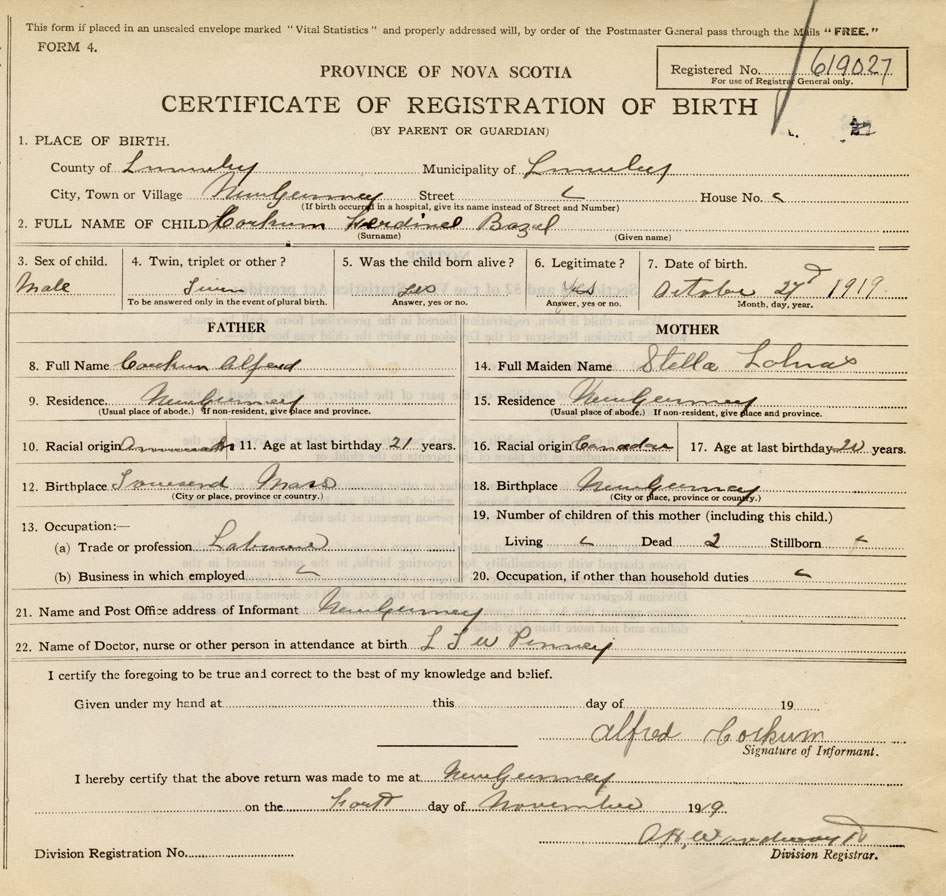 This form if placed in an unsealed envelope marked "Vital Statistics" and properly addressed will, by order of the Postmaster General pass through the Mails "FREE."
FORM 4.
Registered No. 619027
For use of Registrar General only.
PROVINCE OF NOVA SCOTIA
CERTIFICATE OF REGISTRATION OF BIRTH
(BY PARENT OR GUARDIAN)
1. PLACE OF BIRTH.
County of Lunenburg Municipality of Lunenburg
City, Town or Village New Germany Street House No.
(If birth occurred in a hospital, give its name instead of Street and Number)
2. FULL NAME OF CHILD Corkum Ferdinel Bazel
(Surname) (Given name)
3. Sex of child. 4. Twin, triplet or other? 5. Was the child born alive? 6. Legitimate? 7. Date of birth.
Male Twin yes yes October 27 1919
To be answered only in the event of plural birth. Answer, yes or no. Answer, yes or no. Month, day, year.
FATHER
8. Full Name Corkum Alfred
9. Residence. New Germany
(Usual place of abode.) If non-resident, give place and province.
10. Racial origin 11. Age at last birthday 21 years.
12. Birthplace Townsend Mass
(City or place, province or country.)
13. Occupation:—
(a) Trade or profession Labourer
(b) Business in which employed
MOTHER
14. Full Maiden Name Stella Lohnas
15. Residence New Germany
(Usual place of abode.) If non-resident, give place and province.
16. Racial origin 17. Age at last birthday 20 years.
18. Birthplace New Germany
(City or place, province or country.)
19. Number of children of this mother (including this child.)
Living Dead 2 Stillborn
20. Occupation, if other than household duties
21. Name and Post Office address of Informant New Germany
22. Name of Doctor, nurse or other person in attendance at birth Penney
I certify the foregoing to be true and correct to the best of my knowledge and belief.
Given under my hand at this day of 19
Alfred Corkum
Signature of Informant.
I hereby certify that the above return was made to me at New Germany
on the day of November 1919
Division Registration No.
Division Registrar.